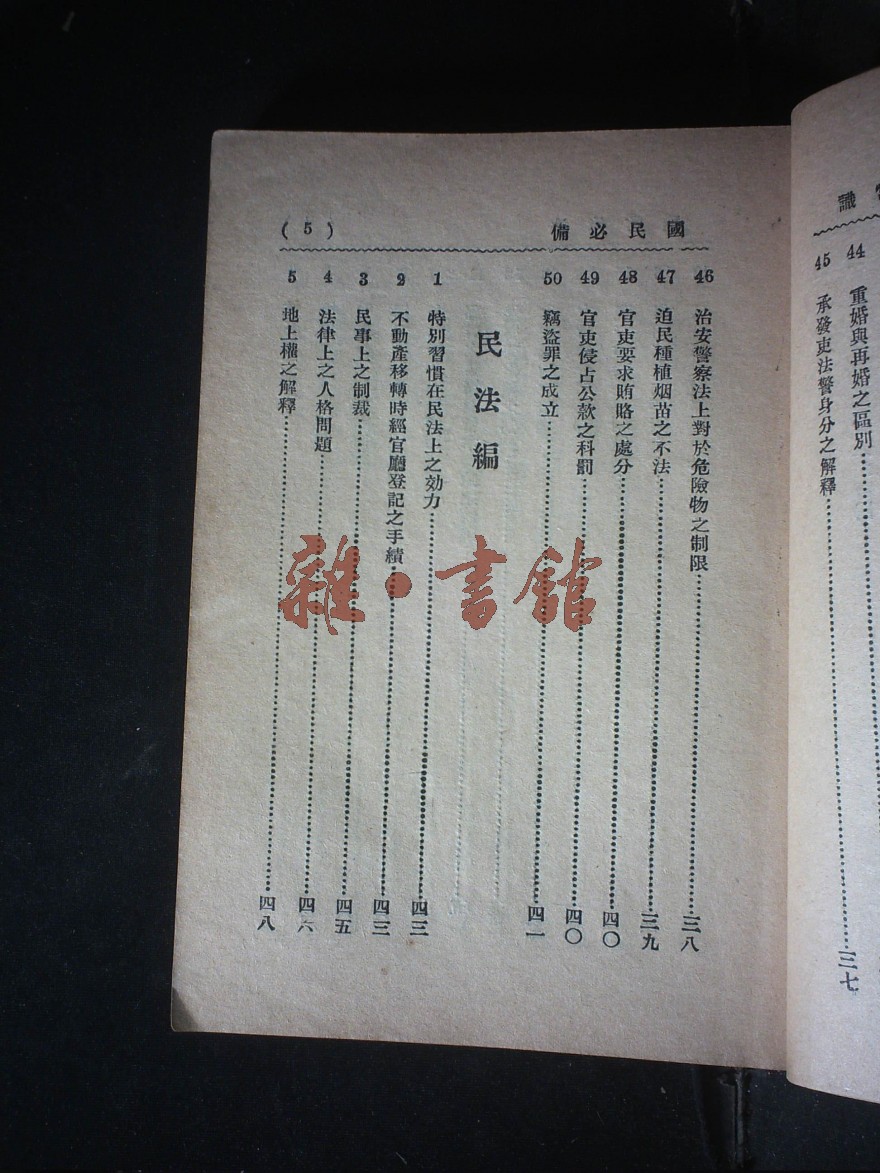 識
44 重婚與再婚之區別
45 承發吏法警身分之解釋……三七
國民必備
(5)
46 治安警察法上對於危險物之制限……三八
47 迫民種植烟苗之不法……三九
48 官吏要求賄賂之處分……四〇
49 官吏侵占公款之科罰……四〇
50 竊盜罪之成立……四一
民法編
1 特別習慣在民法上之効力……四三
2 不動產移轉時經官廳登記之手續……四三
3 民事上之制裁……四五
4 法律上之人格問題……四六
5 地上權之解釋……四八
雜·書館